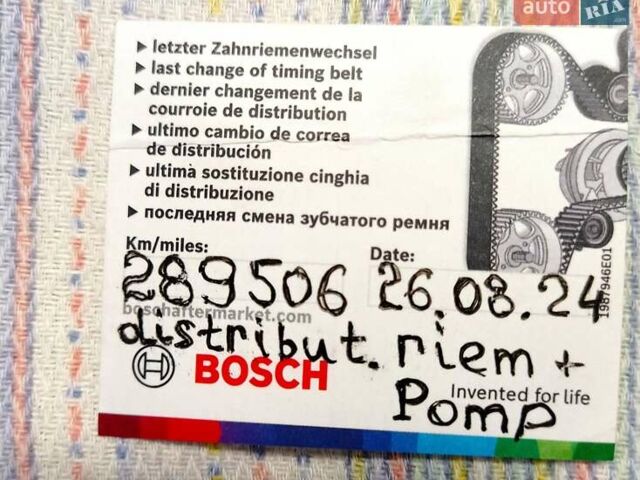 auto RIA
.com
▶ letzter Zahnriemenwechsel
▶ last change of timing belt
▶ dernier changement de la
courroie de distribution
▶ ultimo cambio de correa
de distribución
▶ ultimà sostituzione cinghia
di distribuzione
▶ последняя смена зубчатого ремня
Km/miles:
Date:
289506 26.08.24
boschaftermarket.com
distribut. riem +
BOSCH
Invented for life
Pomp
1987946E01